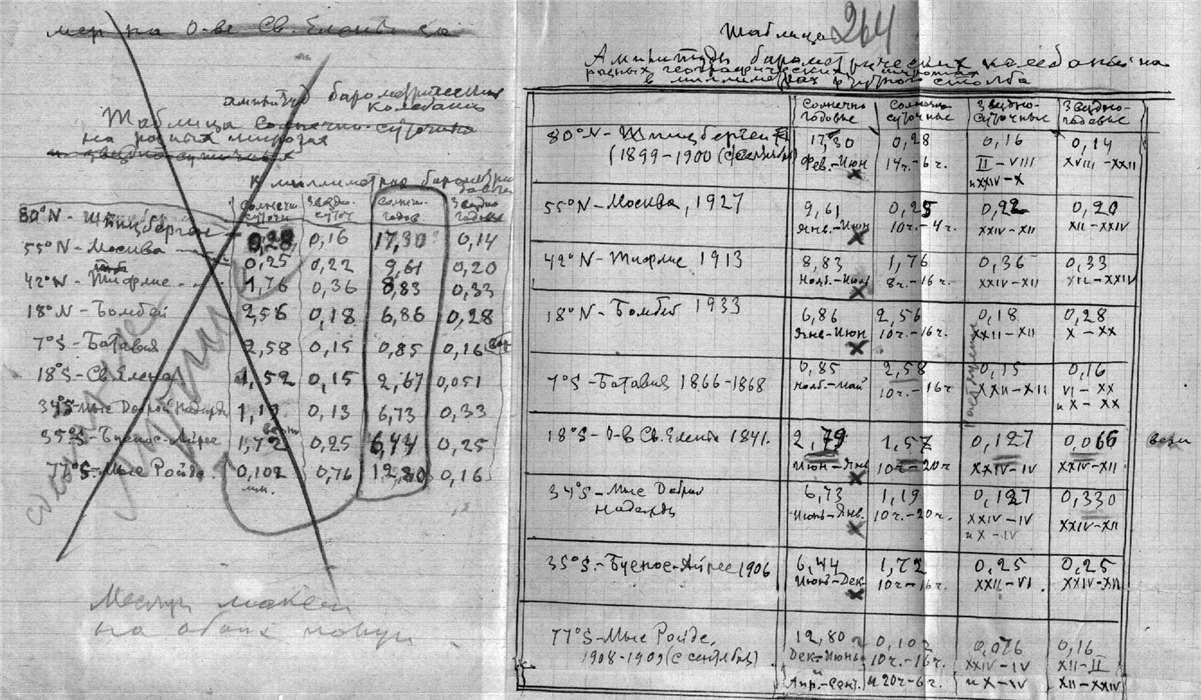 мер на о-ве Св. Елены за
амплитуд барометрических
колебаний
Таблица солнечно-суточных
на разных широтах
в миллиметрах барометрич.
давления
солнечн. суточн. звездно-суточ. солнечн. годов. звездно годовые
80°N - Шпицберген 0,28 0,16 17,30 0,14
55°N - Москва 0,25 0,22 9,61 0,20
42°N - Тифлис 1,76 0,36 8,83 0,33
18°N - Бомбей 2,56 0,18 6,86 0,28
7°S - Батавия 2,58 0,15 0,85 0,16
18°S - Св. Елена 1,52 0,15 2,67 0,051
34°S - Мыс Доброй Надежды 1,19 0,13 6,73 0,33
35°S - Буенос-Айрес 1,72 0,25 6,44 0,25
77°S - Мыс Ройдс 0,102 0,76 12,80 0,16
мм.
на обоих
264
Таблица
Амплитуды барометрических колебаний на
разных географических широтах
в миллиметрах ртутного столба
солнечно-годовые солнечно-суточные Звездно-суточные Звездно-годовые
80°N - Шпицберген 17,30 0,28 0,16 0,14
(1899-1900 (с сентября) Фев.-Июн 14ч.-6ч. II-VIII XVIII-XXII
и XXIV-X
55°N - Москва, 1927 9,61 0,25 0,22 0,20
Янв.-Июн 10ч.-4ч. XXIV-XII XII-XXIV
42°N - Тифлис 1913 8,83 1,76 0,36 0,33
Нояб.-Июль 8ч.-16ч. XXIV-XII XII-XXIV
18°N - Бомбей 1933 6,86 2,56 0,18 0,28
Янв-Июн 10ч-16ч. XXII-XII X-XX
7°S - Батавия 1866-1868 0,85 2,58 0,15 0,16
Нояб-Май 10ч.-16ч XXII-XII VI-XX
и X-XX
18°S - О-в Св. Елены 1841. 2,79 1,57 0,127 0,066
Июн-Янв 10ч-20ч XXIV-IV XXIV-XII
34°S - Мыс Доброй 6,73 1,19 0,127 0,330
Надежды Июнь-Янв. 10ч.-20ч. XXIV-IV XXIV-XII
и X-IV
35°S. - Буенос-Айрес 1906 6,44 1,72 0,25 0,25
Июнь-Дек 10ч-16ч. XXII-VI. XXIV-XII
77°S - Мыс Ройдс, 12,80 0,102 0,076 0,16
1908-1909 (с сентября) Дек-Июнь 10ч.-16ч. XXIV-IV XII-II
Апр.-Сент. и 20ч-6ч. и X-IV XII-XXIV